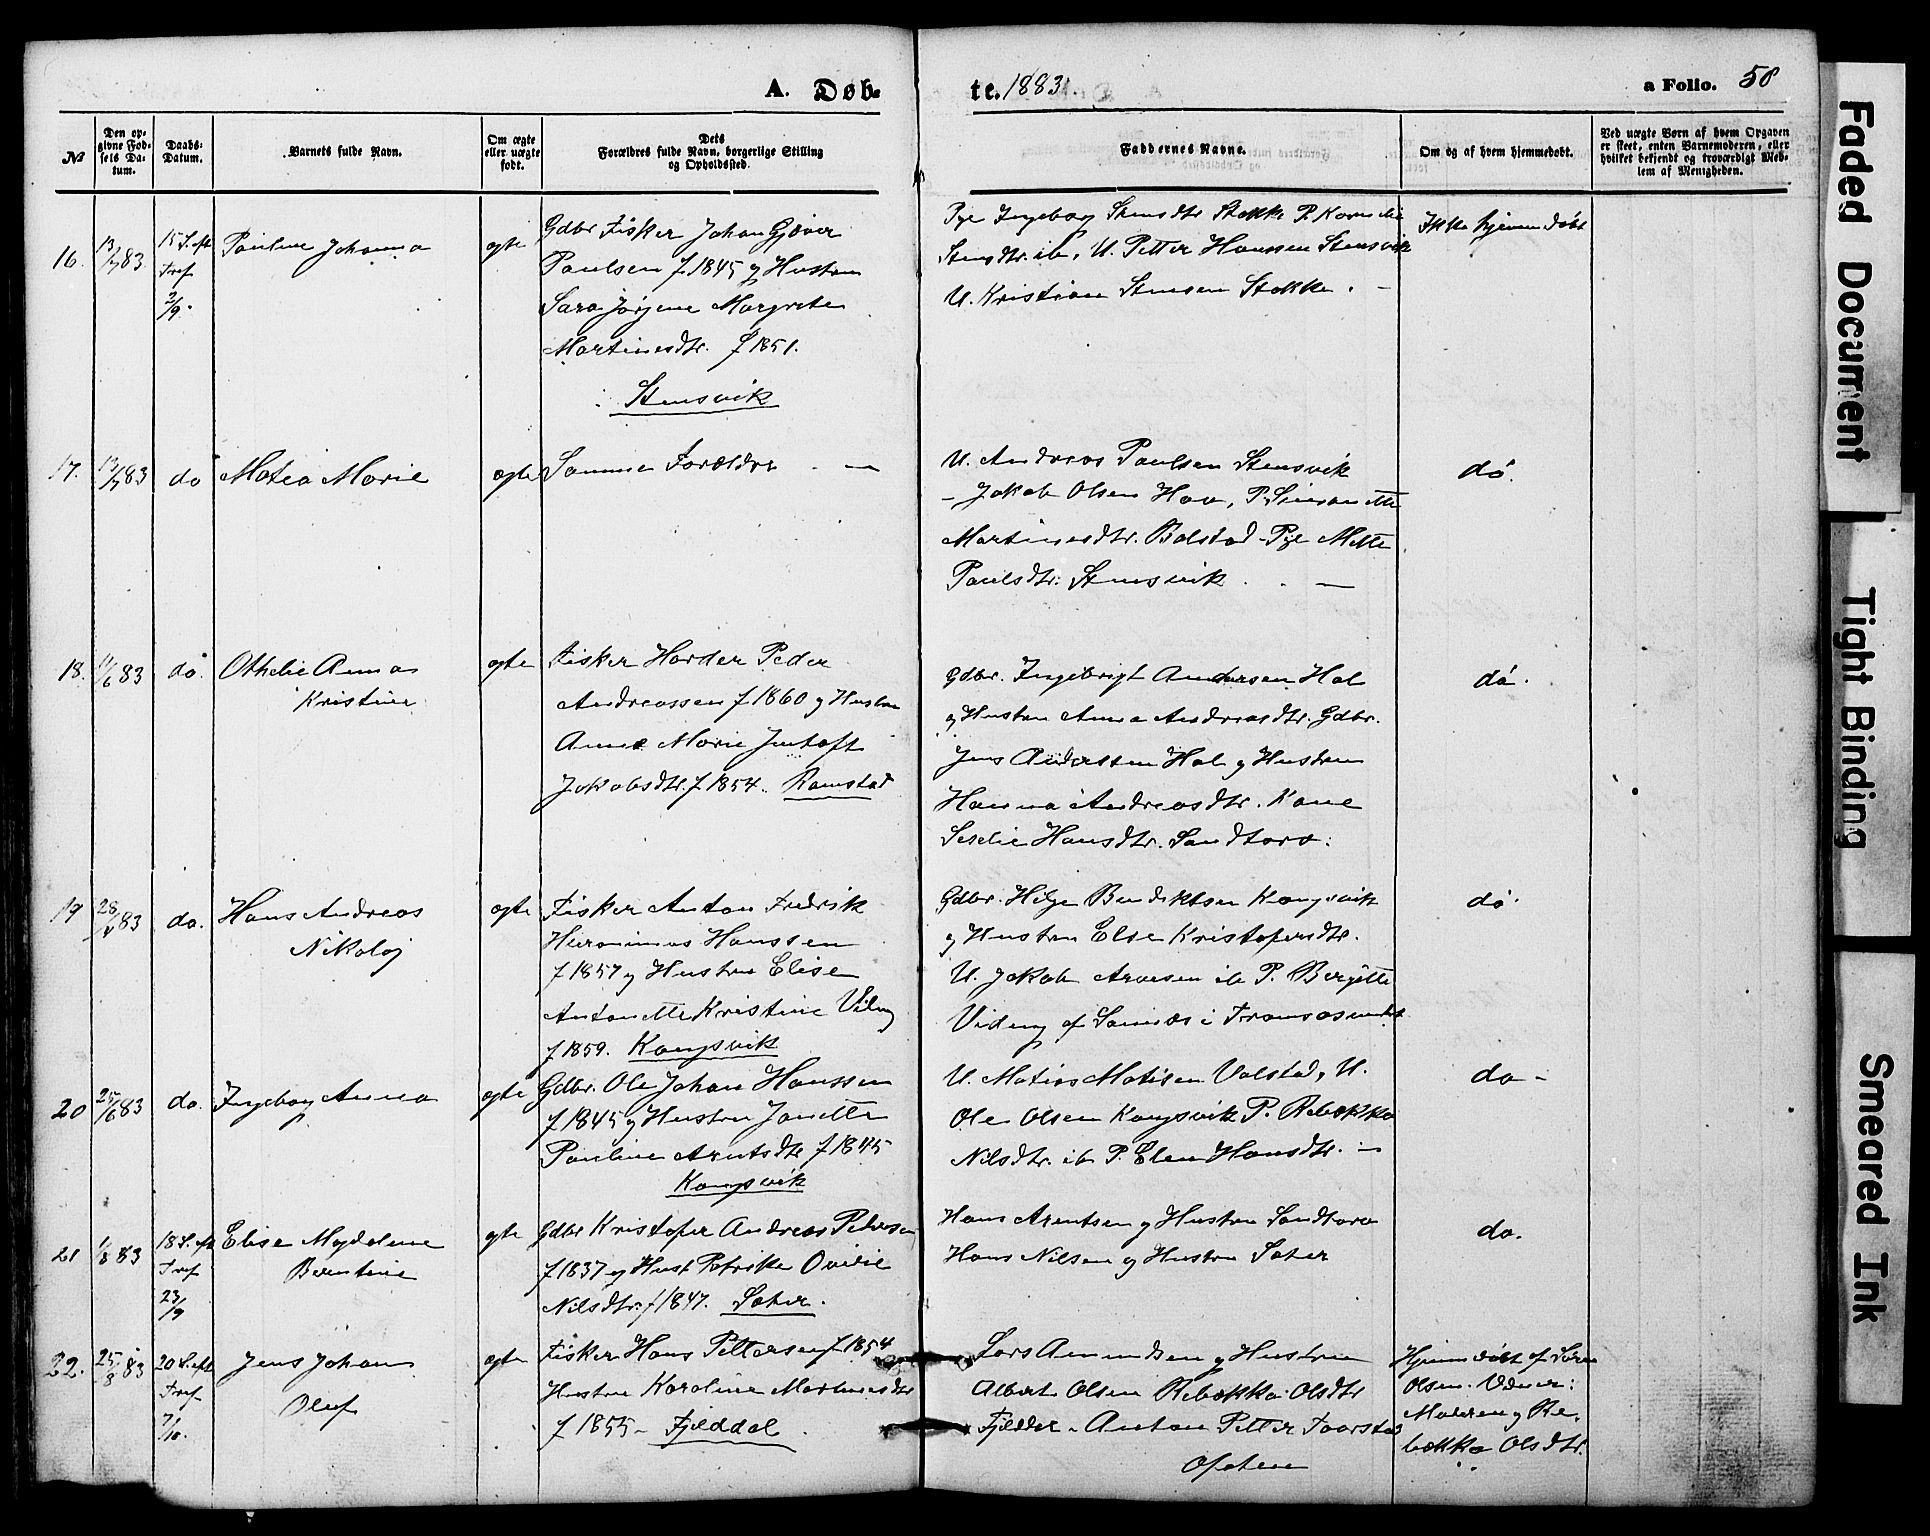 A. Døb-
te. 1883.
a Folio. 58
No
Den op-
givne Fød-
sels Da-
tum.
Daabs-
Datum.
Barnets fulde Navn.
Om ægte
eller uægte
født.
Dets
Forældres fulde Navn, borgerlige Stilling
og Opholdssted.
Faddernes Navne.
Om og af hvem hjemmedøbt.
Ved uægte Børn af hvem Opgaven
er skeet, enten Barnemoderen, eller
hvilket bekjendt og troværdigt Med-
lem af Menigheden.
16.
13/7 83.
15 S. eft
Tref
2/9.
Pauline Johanna
ægte
Gdbr Fisker Johan Gjæver
Paulsen f 1845 og Hustru
Sara Jørgine Margrete
Martinesdtr. f 1851.
Stensvik
Pge Ingeborg Stensdtr Stokke P. Kornelie
Stensdtr. ib, U. Petter Hanssen Stensvik
U. Kristian Stensen Stokke. -
Ikke hjemmedøbt
17.
13/7 83
do
Matea Marie
ægte
Samme Forældre . —
U. Andreas Paulsen Stensvik
- Jakob Olsen Hav, P. Simonette
Martinesdtr. Bolstad - Pge Mette
Paulsdtr. Stensvik . . —
do.
18.
11/6 83
do.
Othelie Anna
Kristine
ægte
Fisker Harder Peder
Andreassen f 1860 og Hustru
Anne Marie Jentoft
Jakobsdtr. f 1854. Ramstad
Gdbr. Ingebrigt Andersen Hol
og Hustru Anna Andreasdtr. Gdbr.
Jens Anderssen Hol og Hustru
Hanna Andreasdtr. Kone
Seselie Hansdtr. Sandtorv.
do.
19
28/ 83
do.
Hans Andreas
Nikolaj
ægte
Fisker Anton Fredrik
Hieronimus Hanssen
f 1857 og Hustru Elise
Antonette Kristine
f 1859. Kongsvik
Gdbr. Bendiktsen Kongsvik
og Hustru Else Kristofersdtr.
U. Jakob ib P. Bergitte
af i
do.
20
25/6 83
do.
Ingeborg Anna
ægte
Gdbr. Ole Johan Hanssen
f 1845 og Hustru Janette
Pauline Arntsdtr f 1845
Kongsvik
U. Matias Matisen Volstad, U.
Ole Olsen Kongsvik P. Rebekka
Nilsdtr. ib P. Elen Hansdtr. -
do -
21
1/8 83
18 S. eft
Tref
23/9
Elise Magdalene
Berntine
ægte
Gdbr Kristofer Andreas Pedersen
f 1837 og Hust Petrike Ovidie
Nilsdtr. f 1847. Sæter.
Hans Arentsen og Hustru Sandtorv
Hans Nilsen og Hustru Sæter
do.
22.
25/8 83
20 S. eft
Tref
7/10
Jens Johan
Oluf
ægte
Fisker Hans Pettersen f 1854
Hustru Karoline Martinesdtr
f 1855 - Fjelddal.
Lars Amundsen og Hustru
Albert Olsen Rebekka Olsdtr
- Anton Petter
Ofoten
Hjemmedøbt af Søren
Olsen. Vidner:
Moderen og Re-
bekka Olsdtr.
Faded Document
Tight Binding
Smeared Ink